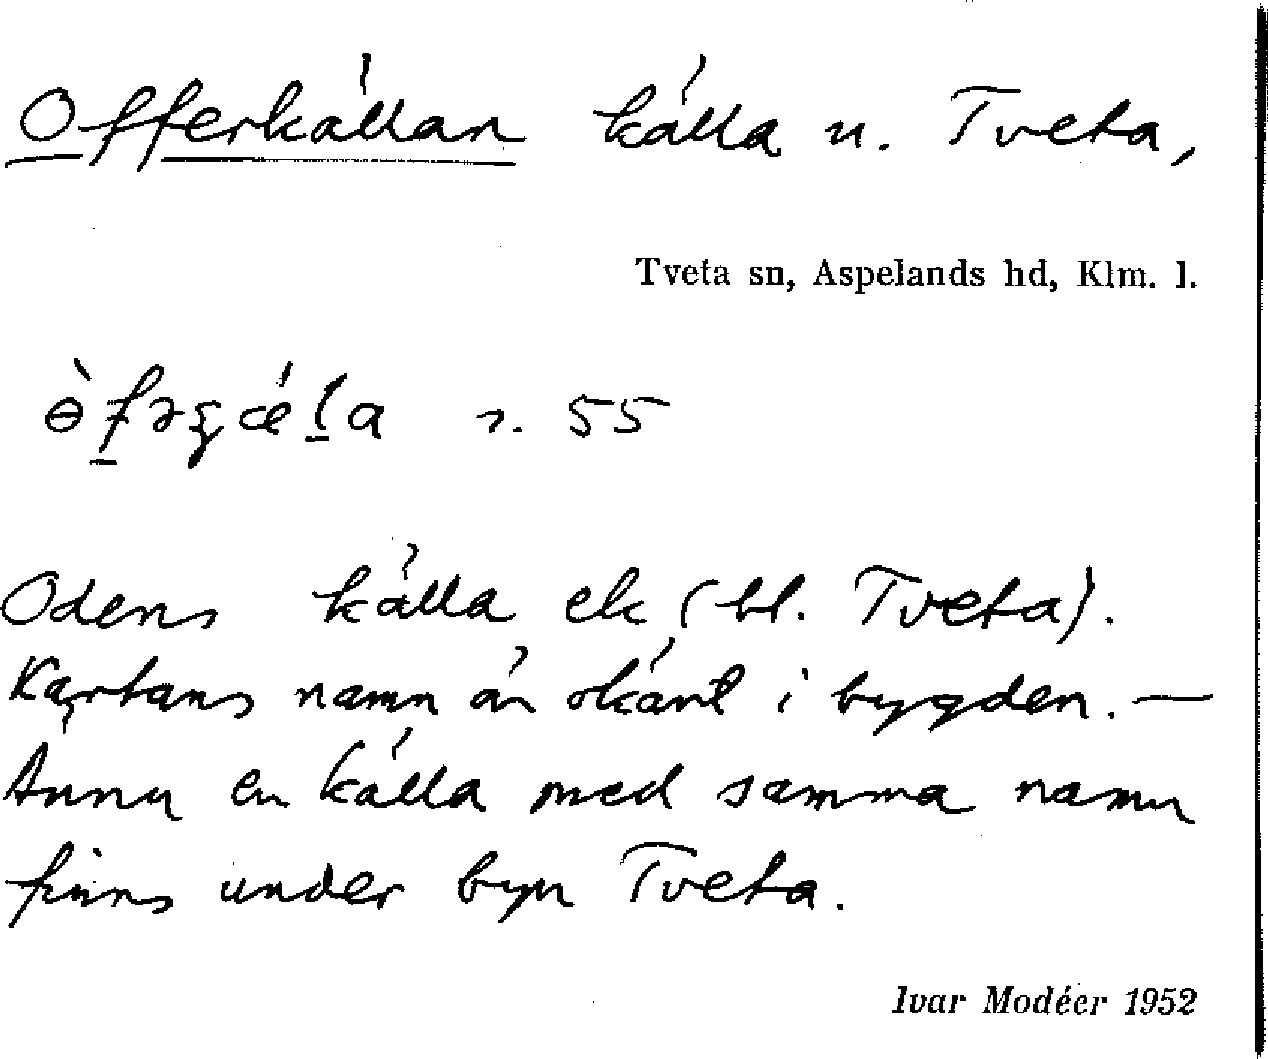 Offerkällan källa u. Tveta,
Tveta sn, Aspelands hd, Klm. l.
55
Odens källa ek (bl. Tveta).
Kartans namn är okänt i bygden. —
Ännu en källa med samma namn
finns under byn Tveta.
Ivar Modéer 1952